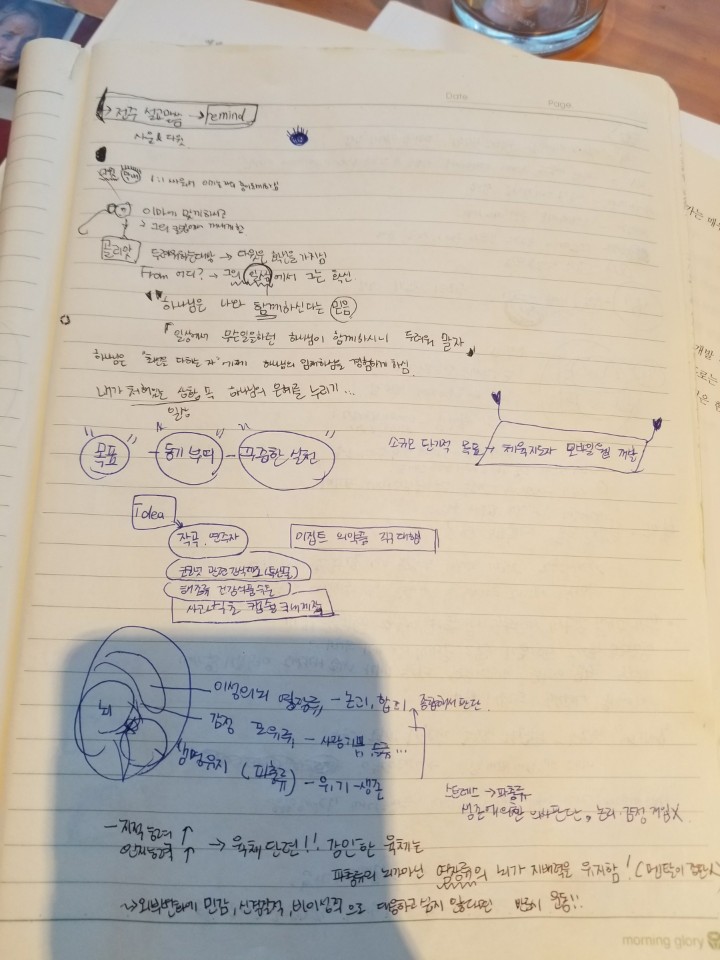 Date
Page
→ 전주 설교말씀 → remind
사울 & 다윗
이마에 맞게하시고
골리앗 두려워하는대상 → 다윗은 확신을 가지심
From 어디? → 그의 일상에서 그는 확신
"하나님은 나와 함께하신다는 믿음
「일상에서 무슨일을하던 하나님이 함께하시니 두려워 말자」
하나님은 "최선을 다하는 자"에게 하나님의 임재하심을 경험하게 하심
내가 처해있는 상황 속 하나님의 은혜를 누리기...
일상
"목표" - "동기부여" - "꾸준한 실천"
소규모 단기적 목표 → 체육지도자 모바일앱 개발
Idea
작곡, 연주자
이집트 의약품 구매대행
건강식품수출
캡슐
뇌
이성의뇌 영장류 - 논리, 합리, 종합해서 판단.
감정 포유류, - 사랑, ...
생명유지 (파충류) - 위기-생존
스트레스 → 파충류
생존에의한 의사판단, 논리·감정 개입X.
- 지적능력 ↑
인지능력 ↑ → 육체단련!! 강인한 육체는
파충류의 뇌가아닌 영장류의 뇌가 지배력을 유지함! (멘탈이
→ 외부변화에 민감, 신경질적, 비이성적으로 대응하고싶지 않다면 반드시 운동!!
morning glory